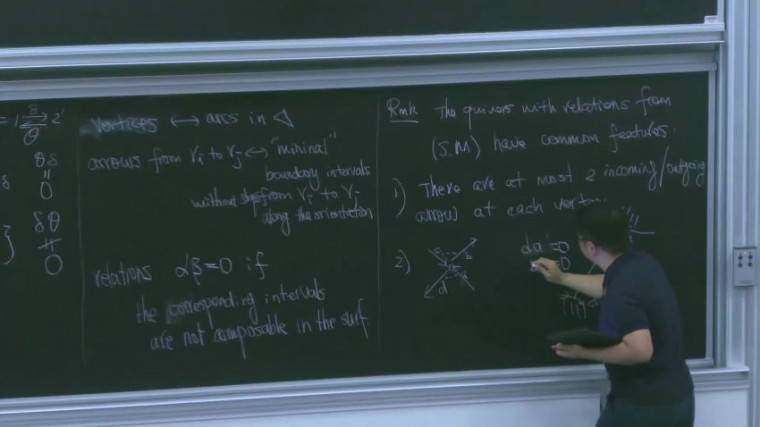 = 1 δ/θ 2'
θδ
"
0
δθ
0
vertices ↔ arcs in Δ
arrows from γi to γj ↔ "minimal"
boundary intervals
without steps from γi to γj
along the orientation
relations αβ=0 if
the corresponding intervals
are not composable in the surf.
Rmk The quivers with relations from
(S.M) have common features.
1) There are at most 2 incoming/outgoing
arrow at each
2)
c
b
d
da =0
=0